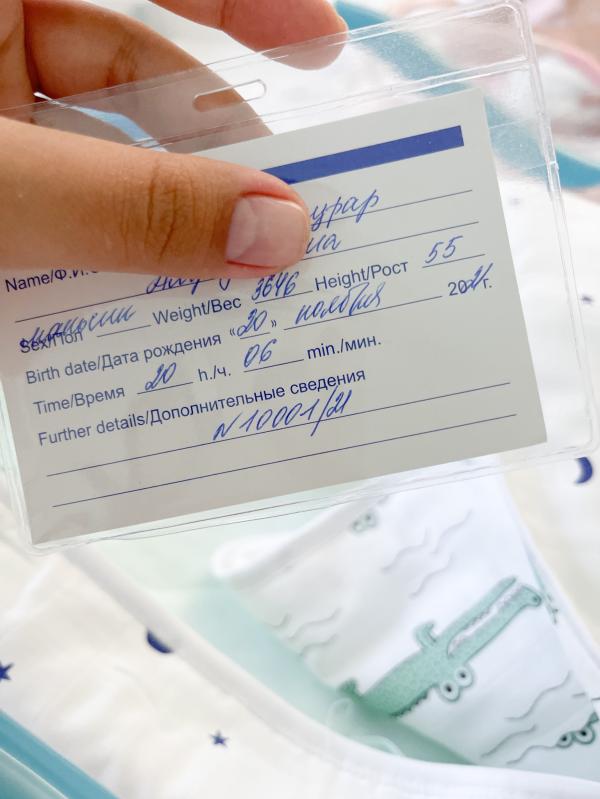 Name/Ф.И.О
Sex/Пол мальчик Weight/Вес 3646 Height/Рост 55
Birth date/Дата рождения «20» ноября 2021г.
Time/Время 20 h./ч. 06 min./мин.
Further details/Дополнительные сведения
N10001/21